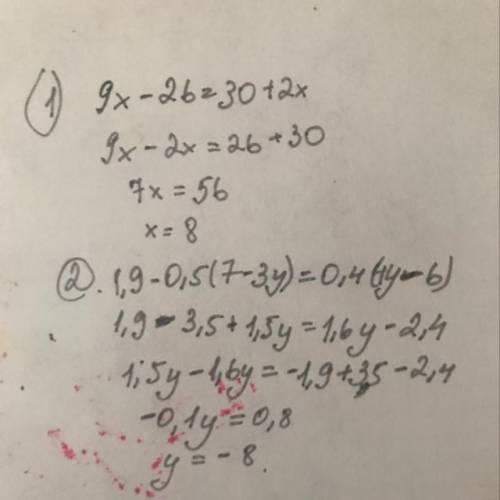 1) 9x-26=30+2x
9x-2x=26+30
7x=56
x=8
2. 1,9-0,5(7-3y)=0,4(4y-6)
1,9-3,5+1,5y=1,6y-2,4
1,5y-1,6y=-1,9+3,5-2,4
-0,1y=0,8
y=-8.